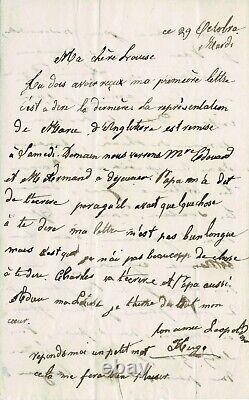 ce 29 Octobre
Mardi
Ma chère Louise
Tu dois avoir reçue ma première lettre
c'est à dire la dernière. La représentation
de Marie d'Angleterre est remise
à Samedi. Demain nous verrons Mme Edouard
et M. Armand a dejeuner. Papa m'a dit
de t'ecrire ayant quelque chose
a te dire ma lettre n'est pas bien longue
mais c'est que je n'ai pas beaucoup de chose
à te dire. Charles va t'ecrire et Papa aussi.
Adieu ma je t'aime de tout mon
cœur.
ton amie Leopoldine
Hugo
reponds moi un petit mot
cela me fera bien plaisir